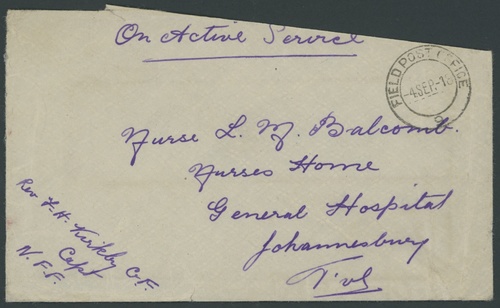 On Active Service
FIELD POST OFFICE
4 SEP. 18
Nurse L. M. Balcomb.
Nurses Home
General Hospital
Johannesburg
Tvl
Rev F. H. Kirkby C.F.
Capt
N. F. F.